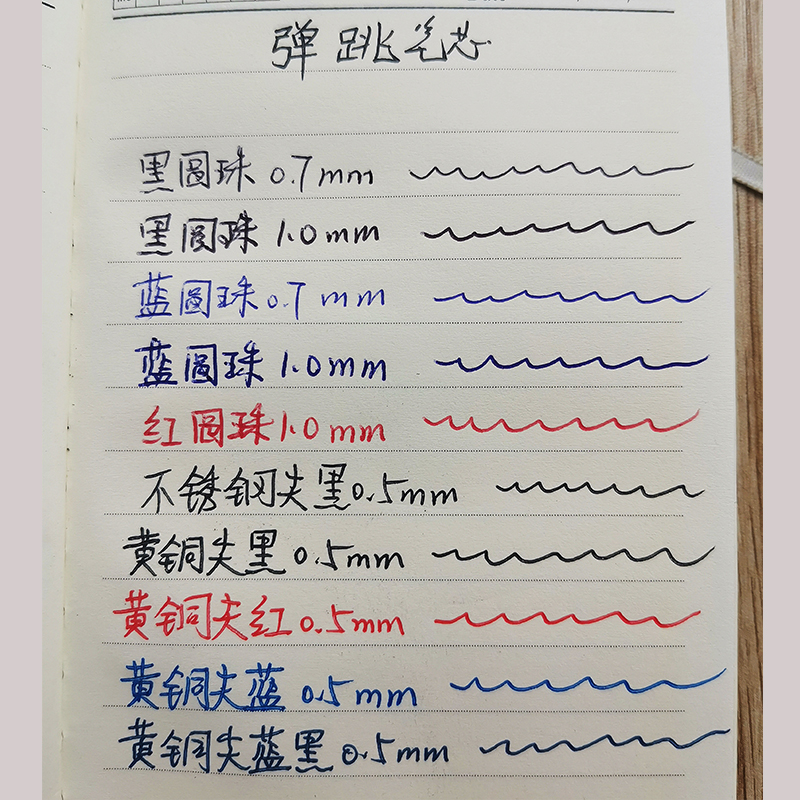 弹跳笔芯
黑圆珠 0.7mm
黑圆珠 1.0mm
蓝圆珠 0.7mm
蓝圆珠 1.0mm
红圆珠 1.0mm
不锈钢尖黑 0.5mm
黄铜尖黑 0.5mm
黄铜尖红 0.5mm
黄铜尖蓝 0.5mm
黄铜尖蓝黑 0.5mm